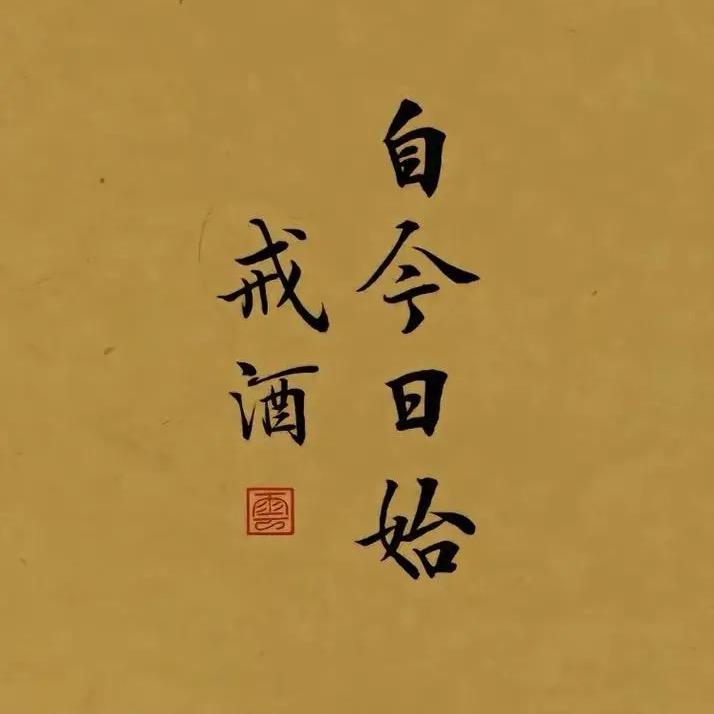 自今日始
戒酒
雲